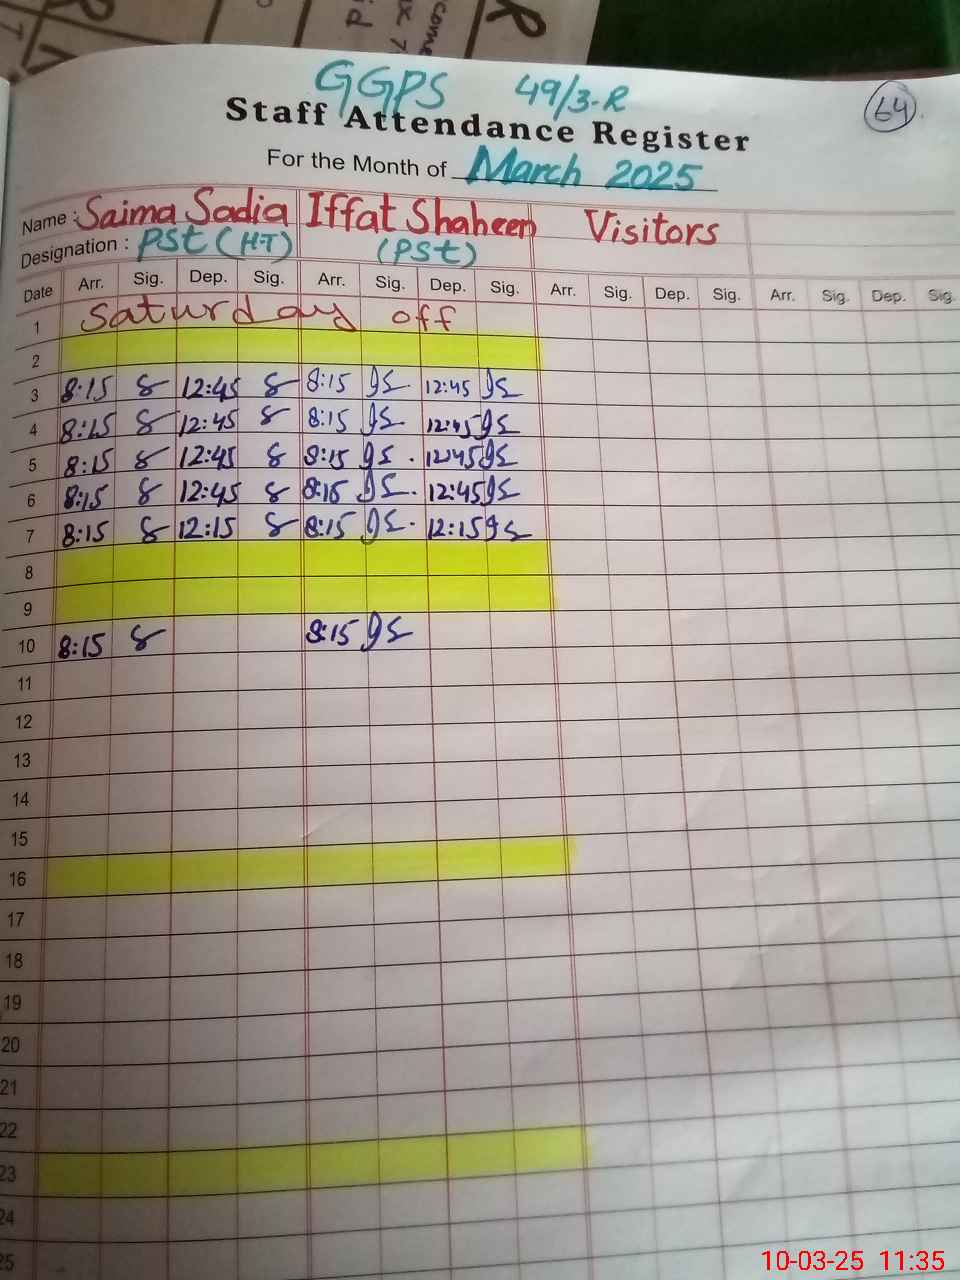 GGPS 49/3-R
64
Staff Attendance Register
For the Month of March 2025
Name : Saima Sadia Iffat Shaheen Visitors
Designation : PSt (H-T) (PSt)
Date Arr. Sig. Dep. Sig. Arr. Sig. Dep. Sig. Arr. Sig. Dep. Sig. Arr. Sig. Dep. Sig.
1 Saturday off
2
3 8:15 8 12:45 8 8:15 9S 12:45 9S
4 8:15 8 12:45 8 8:15 9S 12:45 9S
5 8:15 8 12:45 8 8:15 9S 12:45 9S
6 8:15 8 12:45 8 8:15 9S 12:45 9S
7 8:15 8 12:15 8 8:15 9S 12:15 9S
8
9
10 8:15 8 8:15 9S
11
12
13
14
15
16
17
18
19
20
21
22
23
24
25
10-03-25 11:35